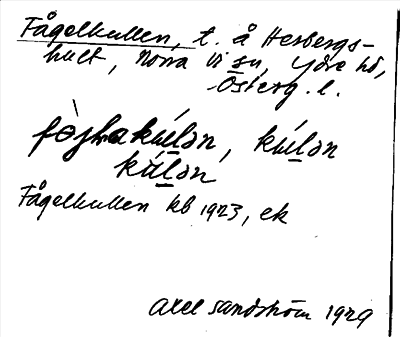 Fågelkullen, t. å Herbergs-
hult, Norra Vi sn, Ydre hd,
Österg. l.
kúlən
kúlən
Fågelkullen kb 1923, ek
Axel Sandström 1929